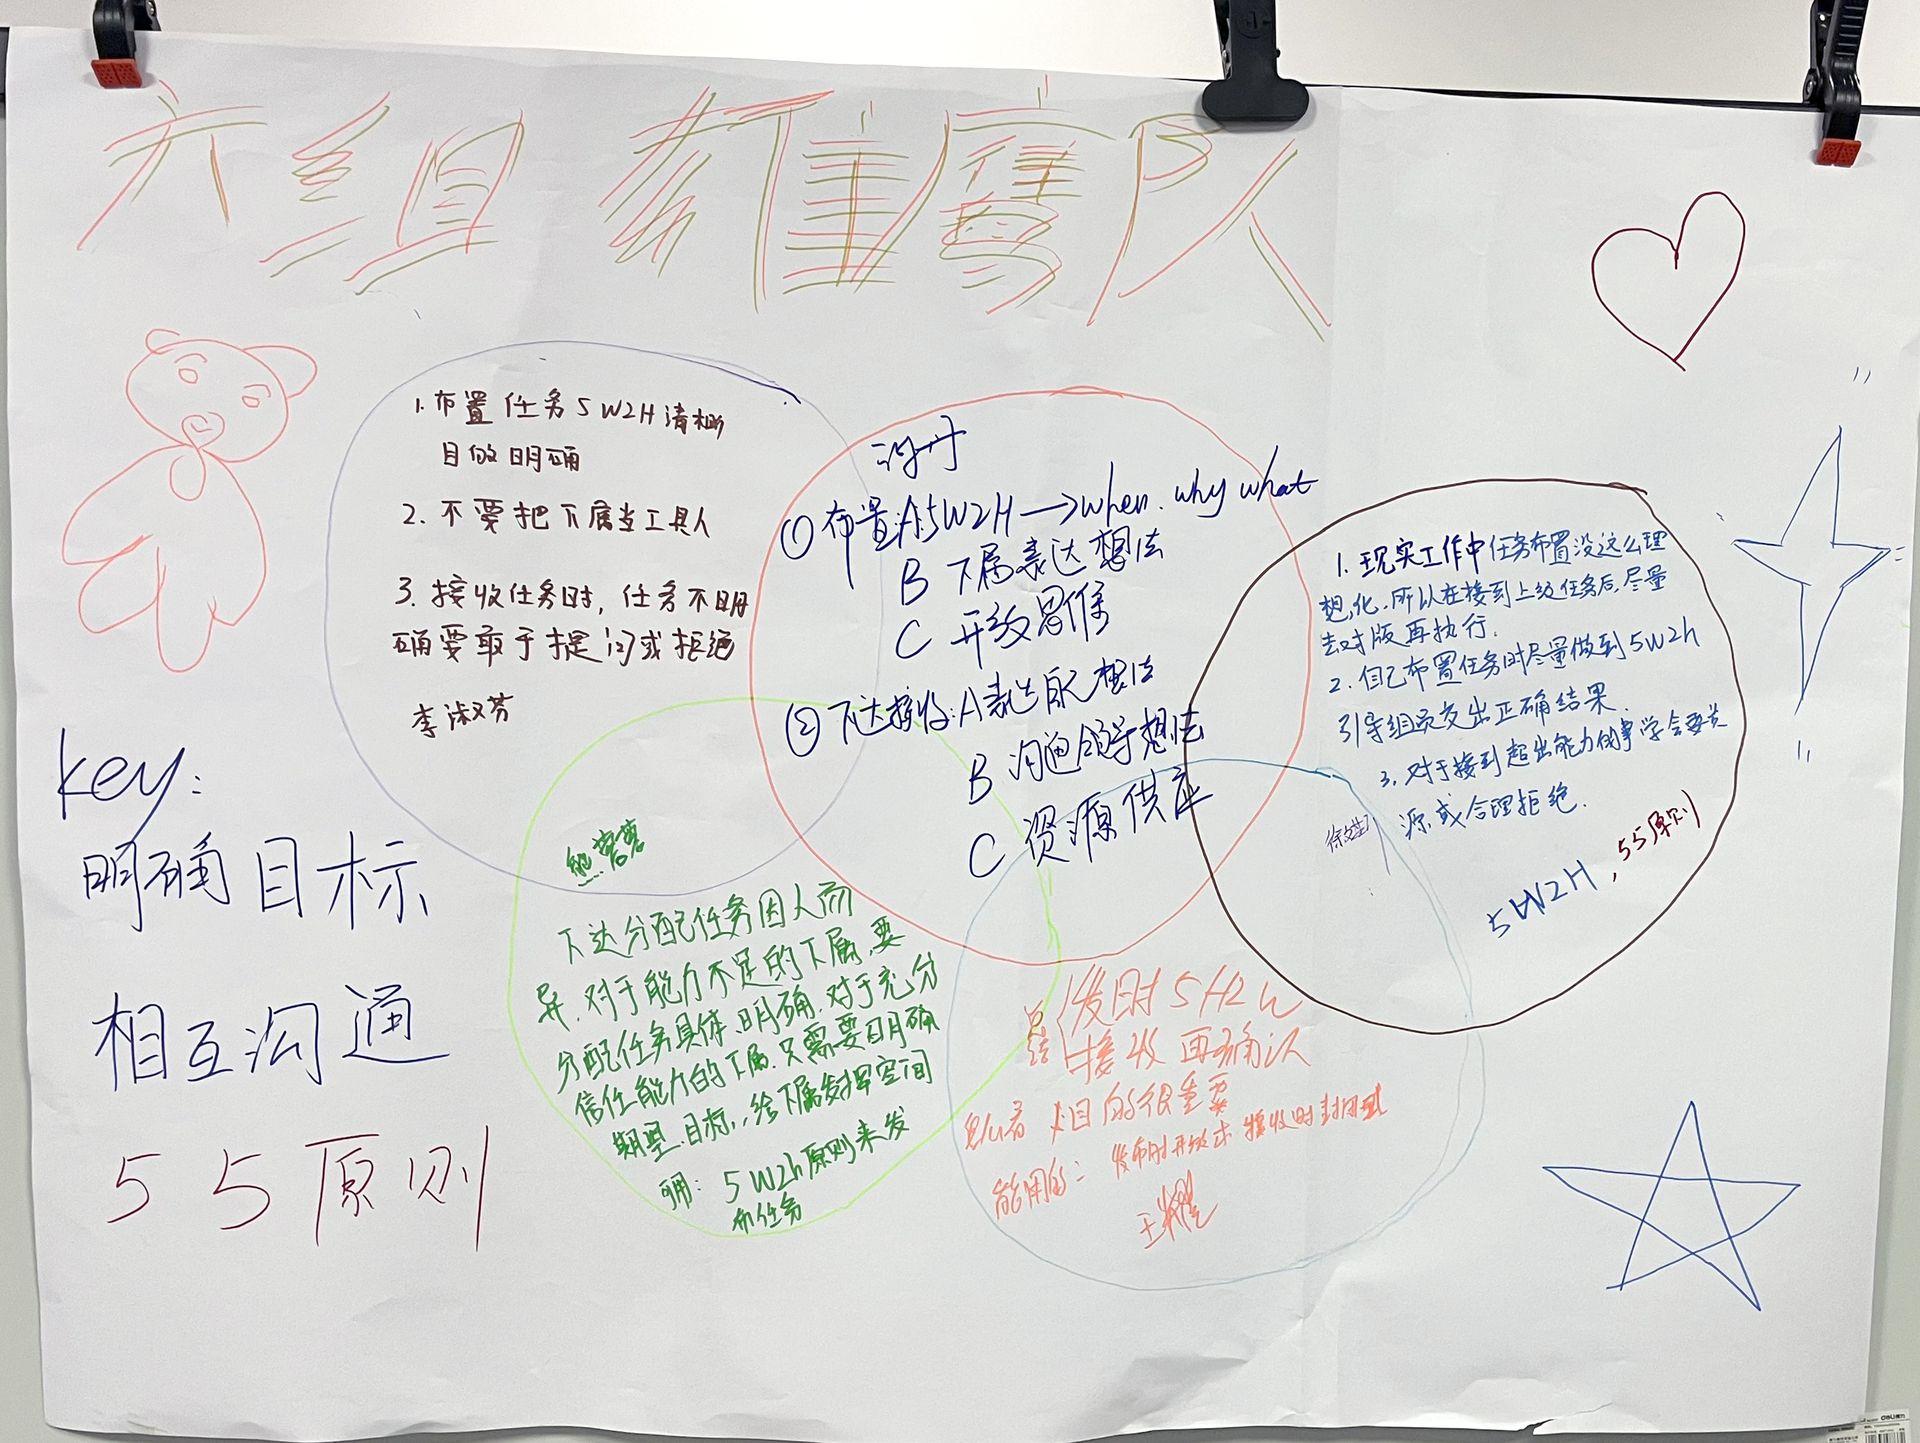 六组 雄鹰队
1. 布置任务5W2H清晰
目的明确
2. 不要把下属当工具人
3. 接收任务时，任务不明
确要敢于提问或拒绝
李淑芬
①布置:A:5W2H→when.why what
B 下属表达想法
C 开放思维
②下达接收:A表达自己想法
B 沟通领导想法
C 资源供应
1. 现实工作中任务布置没这么理
想化.所以在接到上级任务后,尽量
去对版再执行.
2. 自己布置任务时尽量做到5W2h
引导组员交出正确结果.
3. 对于接到超出能力的事学会要资
源或合理拒绝.
5W2H, 55原则
key:
明确目标
相互沟通
55原则
下达分配任务因人而
异.对于能力不足的下属,要
分配任务具体、明确.对于充分
信任能力的下属.只需要明确
期望.目标,,给下属发挥空间
用: 5W2h原则来发
布任务
总结 发时5H2W
接收再确认
目的很重要
能用的: 发布时开放式 接收时封闭式